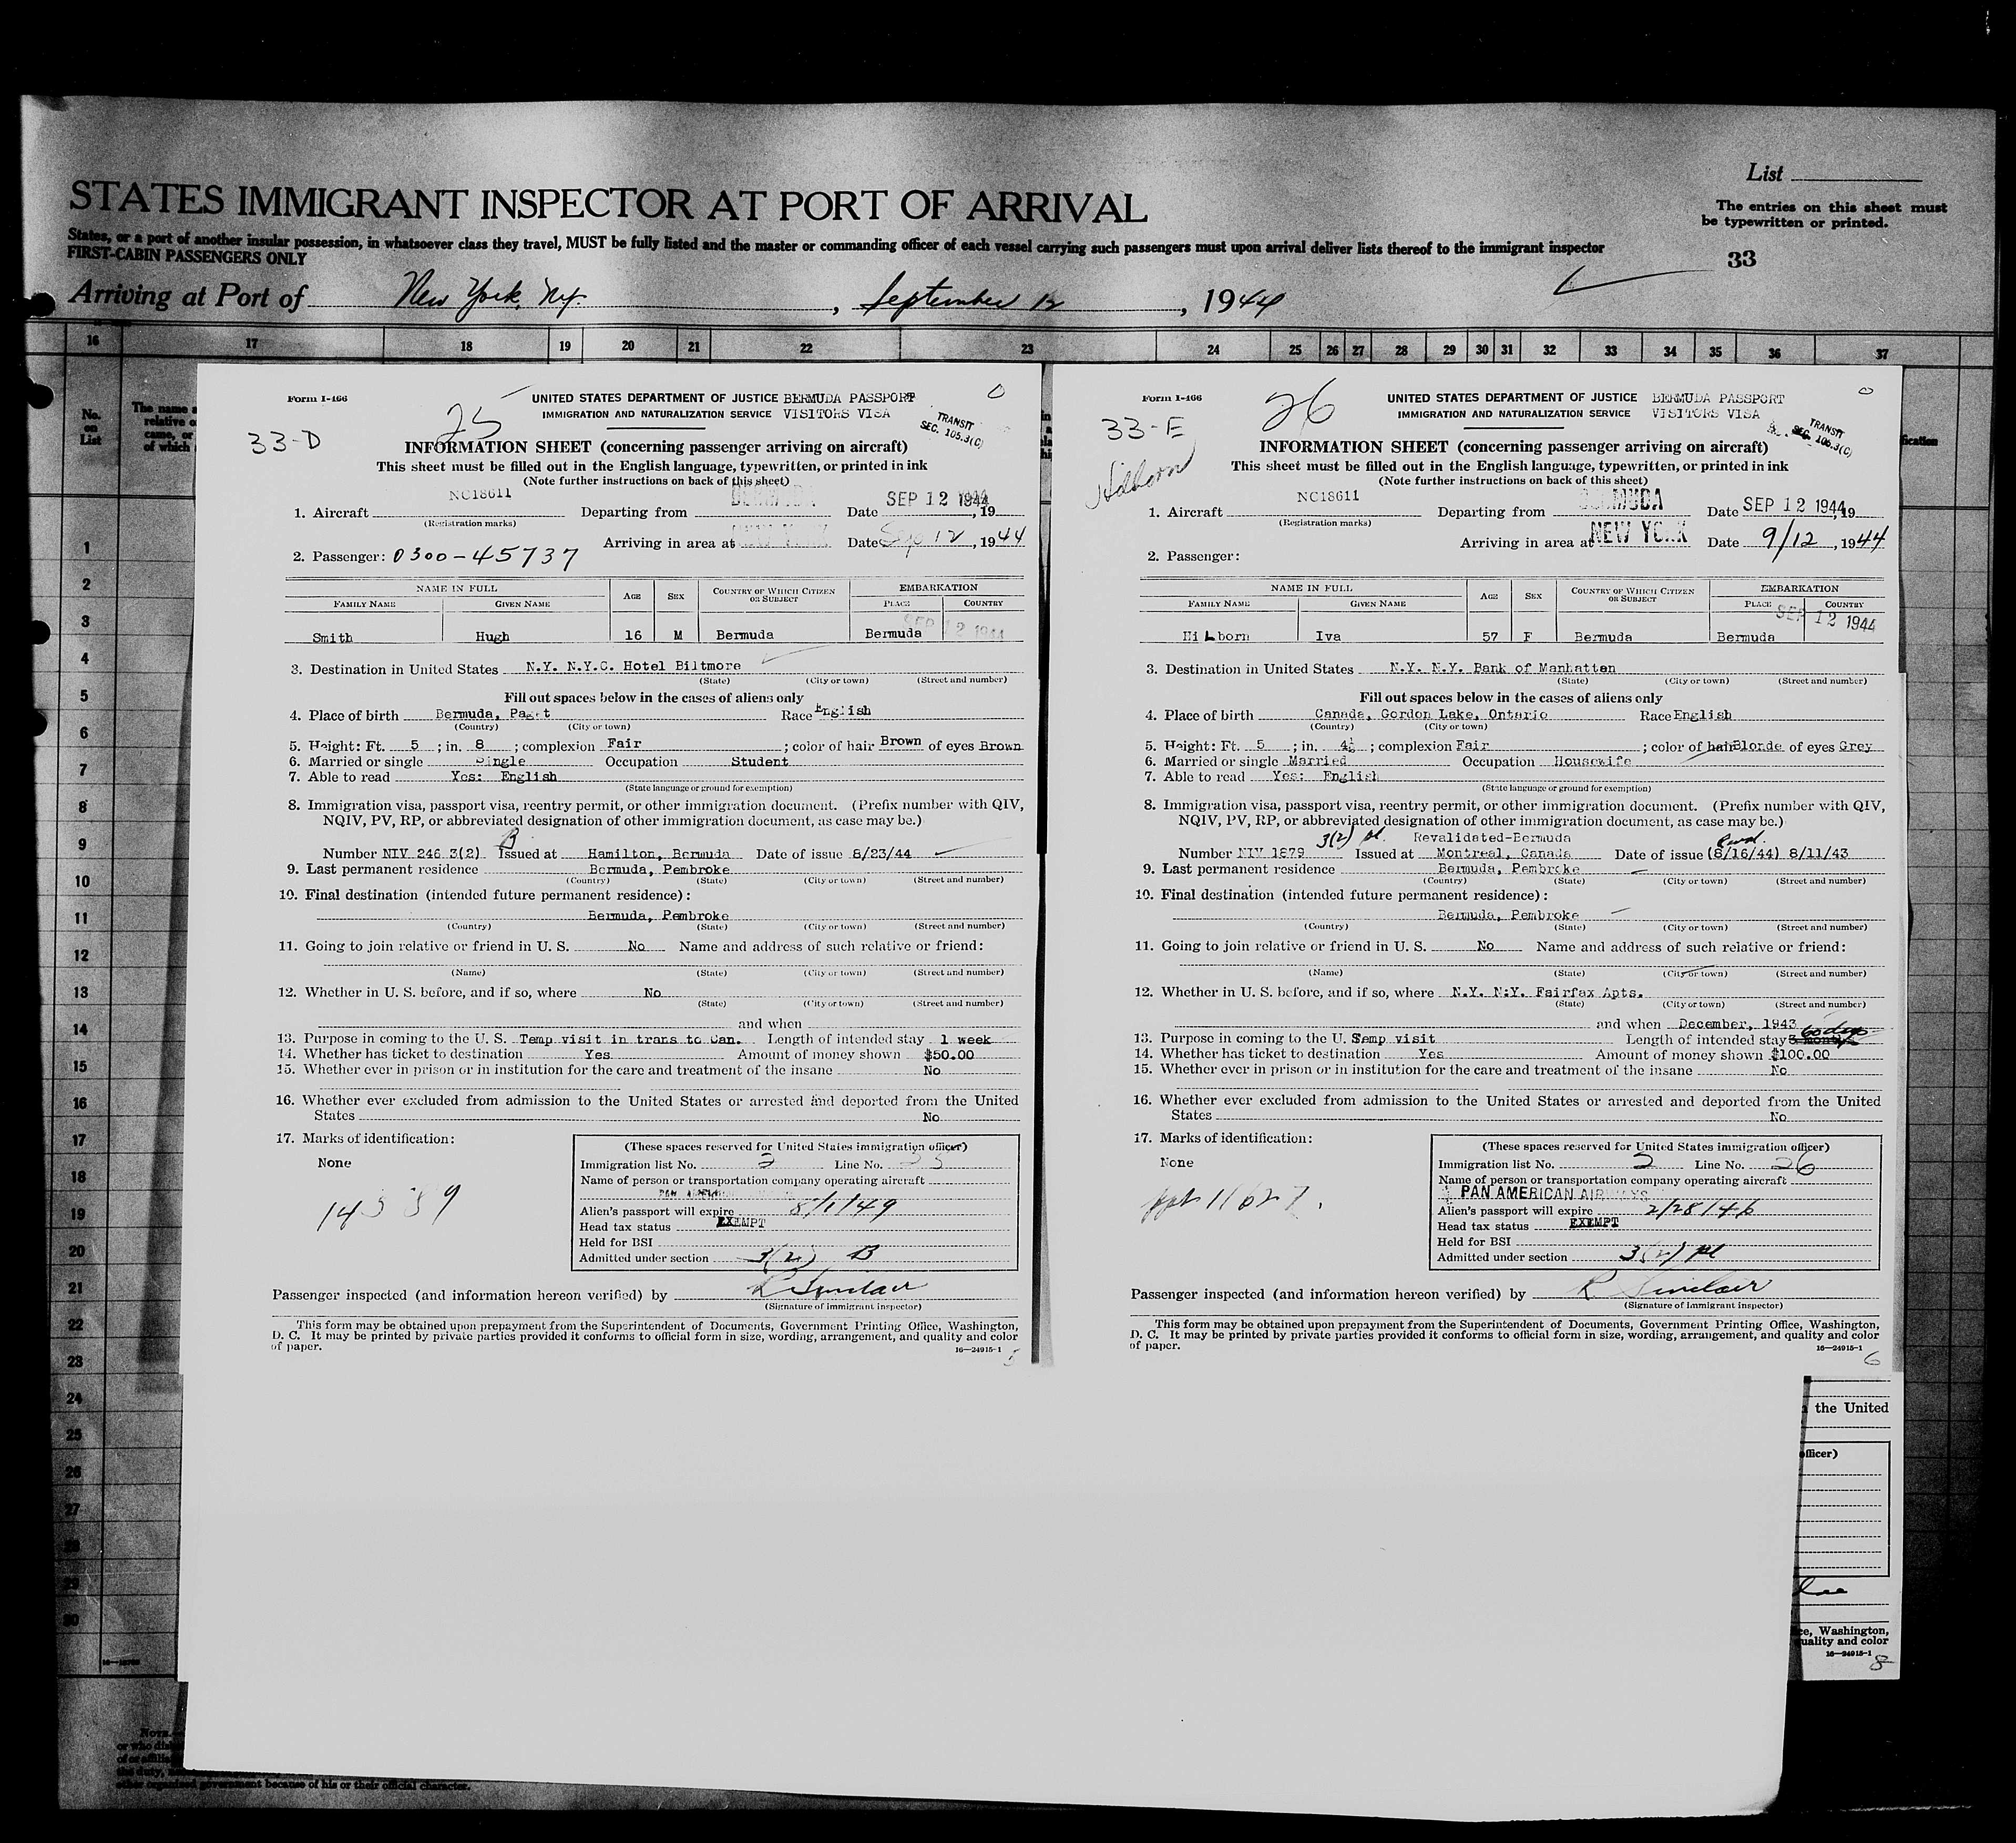 List
STATES IMMIGRANT INSPECTOR AT PORT OF ARRIVAL
The entries on this sheet must
be typewritten or printed.
States, or a port of another insular possession, in whatsoever class they travel, MUST be fully listed and the master or commanding officer of each vessel carrying such passengers must upon arrival deliver lists thereof to the immigrant inspector
FIRST-CABIN PASSENGERS ONLY
33
Arriving at Port of New York, N.Y. , September 12 , 1944
16 17 18 19 20 21 22 23 24 25 26 27 28 29 30 31 32 33 34 35 36 37
No.
on
List
The name
relative
came, or
of which
1
2
3
4
5
6
7
8
9
10
11
12
13
14
15
16
17
18
19
20
21
22
23
24
25
26
27
28
29
30
Form I-466
25
33-D
UNITED STATES DEPARTMENT OF JUSTICE BERMUDA PASSPORT
IMMIGRATION AND NATURALIZATION SERVICE VISITORS VISA
TRANSIT
SEC. 105.3(C)
INFORMATION SHEET (concerning passenger arriving on aircraft)
This sheet must be filled out in the English language, typewritten, or printed in ink
(Note further instructions on back of this sheet)
1. Aircraft NC18611 Departing from BERMUDA Date SEP 12 1944, 19
(Registration marks)
Arriving in area at NEW YORK Date Sep 12, 1944
2. Passenger: 0300-45737
NAME IN FULL AGE SEX COUNTRY OF WHICH CITIZEN OR SUBJECT EMBARKATION
FAMILY NAME GIVEN NAME PLACE COUNTRY
SEP 12 1944
Smith Hugh 16 M Bermuda Bermuda
3. Destination in United States N.Y. N.Y.C. Hotel Biltmore
(State) (City or town) (Street and number)
Fill out spaces below in the cases of aliens only
4. Place of birth Bermuda, Paget Race English
(Country) (City or town)
5. Height: Ft. 5 ; in. 8 ; complexion Fair ; color of hair Brown of eyes Brown
6. Married or single Single Occupation Student
7. Able to read Yes: English
(State language or ground for exemption)
8. Immigration visa, passport visa, reentry permit, or other immigration document. (Prefix number with QIV,
NQIV, PV, RP, or abbreviated designation of other immigration document, as case may be.)
Number NIV 246 3(2) B Issued at Hamilton, Bermuda Date of issue 8/23/44
9. Last permanent residence Bermuda, Pembroke
(Country) (State) (City or town) (Street and number)
10. Final destination (intended future permanent residence):
Bermuda, Pembroke
(Country) (State) (City or town) (Street and number)
11. Going to join relative or friend in U. S. No Name and address of such relative or friend:
(Name) (State) (City or town) (Street and number)
12. Whether in U. S. before, and if so, where No
(State) (City or town) (Street and number)
and when
13. Purpose in coming to the U. S. Temp visit in trans to Can. Length of intended stay 1 week
14. Whether has ticket to destination Yes Amount of money shown $50.00
15. Whether ever in prison or in institution for the care and treatment of the insane No
16. Whether ever excluded from admission to the United States or arrested and deported from the United
States No
17. Marks of identification:
None
(These spaces reserved for United States immigration officer)
Immigration list No. 2 Line No. 25
Name of person or transportation company operating aircraft
Alien's passport will expire 8/1/49
Head tax status EXEMPT
Held for BSI
Admitted under section 3(2) B
Passenger inspected (and information hereon verified) by R Sinclair
(Signature of immigrant inspector)
This form may be obtained upon prepayment from the Superintendent of Documents, Government Printing Office, Washington,
D. C. It may be printed by private parties provided it conforms to official form in size, wording, arrangement, and quality and color
of paper.
16—24915-1
5
Form I-466
26
33-E
Hilborn
UNITED STATES DEPARTMENT OF JUSTICE BERMUDA PASSPORT
IMMIGRATION AND NATURALIZATION SERVICE VISITORS VISA
TRANSIT
SEC. 105.3(C)
INFORMATION SHEET (concerning passenger arriving on aircraft)
This sheet must be filled out in the English language, typewritten, or printed in ink
(Note further instructions on back of this sheet)
1. Aircraft NC18611 Departing from BERMUDA Date SEP 12 1944, 19
(Registration marks)
Arriving in area at NEW YORK Date 9/12, 1944
2. Passenger:
NAME IN FULL AGE SEX COUNTRY OF WHICH CITIZEN OR SUBJECT EMBARKATION
FAMILY NAME GIVEN NAME PLACE COUNTRY
SEP 12 1944
Hilborn Iva 57 F Bermuda Bermuda
3. Destination in United States N.Y. N.Y. Bank of Manhattan
(State) (City or town) (Street and number)
Fill out spaces below in the cases of aliens only
4. Place of birth Canada, Gordon Lake, Ontario Race English
(Country) (City or town)
5. Height: Ft. 5 ; in. 4½ ; complexion Fair ; color of hair Blonde of eyes Grey
6. Married or single Married Occupation Housewife
7. Able to read Yes: English
(State language or ground for exemption)
8. Immigration visa, passport visa, reentry permit, or other immigration document. (Prefix number with QIV,
NQIV, PV, RP, or abbreviated designation of other immigration document, as case may be.)
3(2) pl Revalidated-Bermuda
Number NIV 1879 Issued at Montreal, Canada Date of issue (8/16/44) 8/11/43
9. Last permanent residence Bermuda, Pembroke
(Country) (State) (City or town) (Street and number)
10. Final destination (intended future permanent residence):
Bermuda, Pembroke
(Country) (State) (City or town) (Street and number)
11. Going to join relative or friend in U. S. No Name and address of such relative or friend:
(Name) (State) (City or town) (Street and number)
12. Whether in U. S. before, and if so, where N.Y. N.Y. Fairfax Apts.
(State) (City or town) (Street and number)
and when December, 1943
13. Purpose in coming to the U. S. Temp visit Length of intended stay 3 months 60 days
14. Whether has ticket to destination Yes Amount of money shown $100.00
15. Whether ever in prison or in institution for the care and treatment of the insane No
16. Whether ever excluded from admission to the United States or arrested and deported from the United
States No
17. Marks of identification:
None
(These spaces reserved for United States immigration officer)
Immigration list No. 2 Line No. 26
Name of person or transportation company operating aircraft
PAN AMERICAN AIRWAYS
Alien's passport will expire 2/28/46
Head tax status EXEMPT
Held for BSI
Admitted under section 3(2) pl
Passenger inspected (and information hereon verified) by R Sinclair
(Signature of immigrant inspector)
This form may be obtained upon prepayment from the Superintendent of Documents, Government Printing Office, Washington,
D. C. It may be printed by private parties provided it conforms to official form in size, wording, arrangement, and quality and color
of paper.
16—24915-1
6
the United
officer)
Washington,
quality and color
16—24915-1
8
NOTE.
other organized government because of his or their official character.